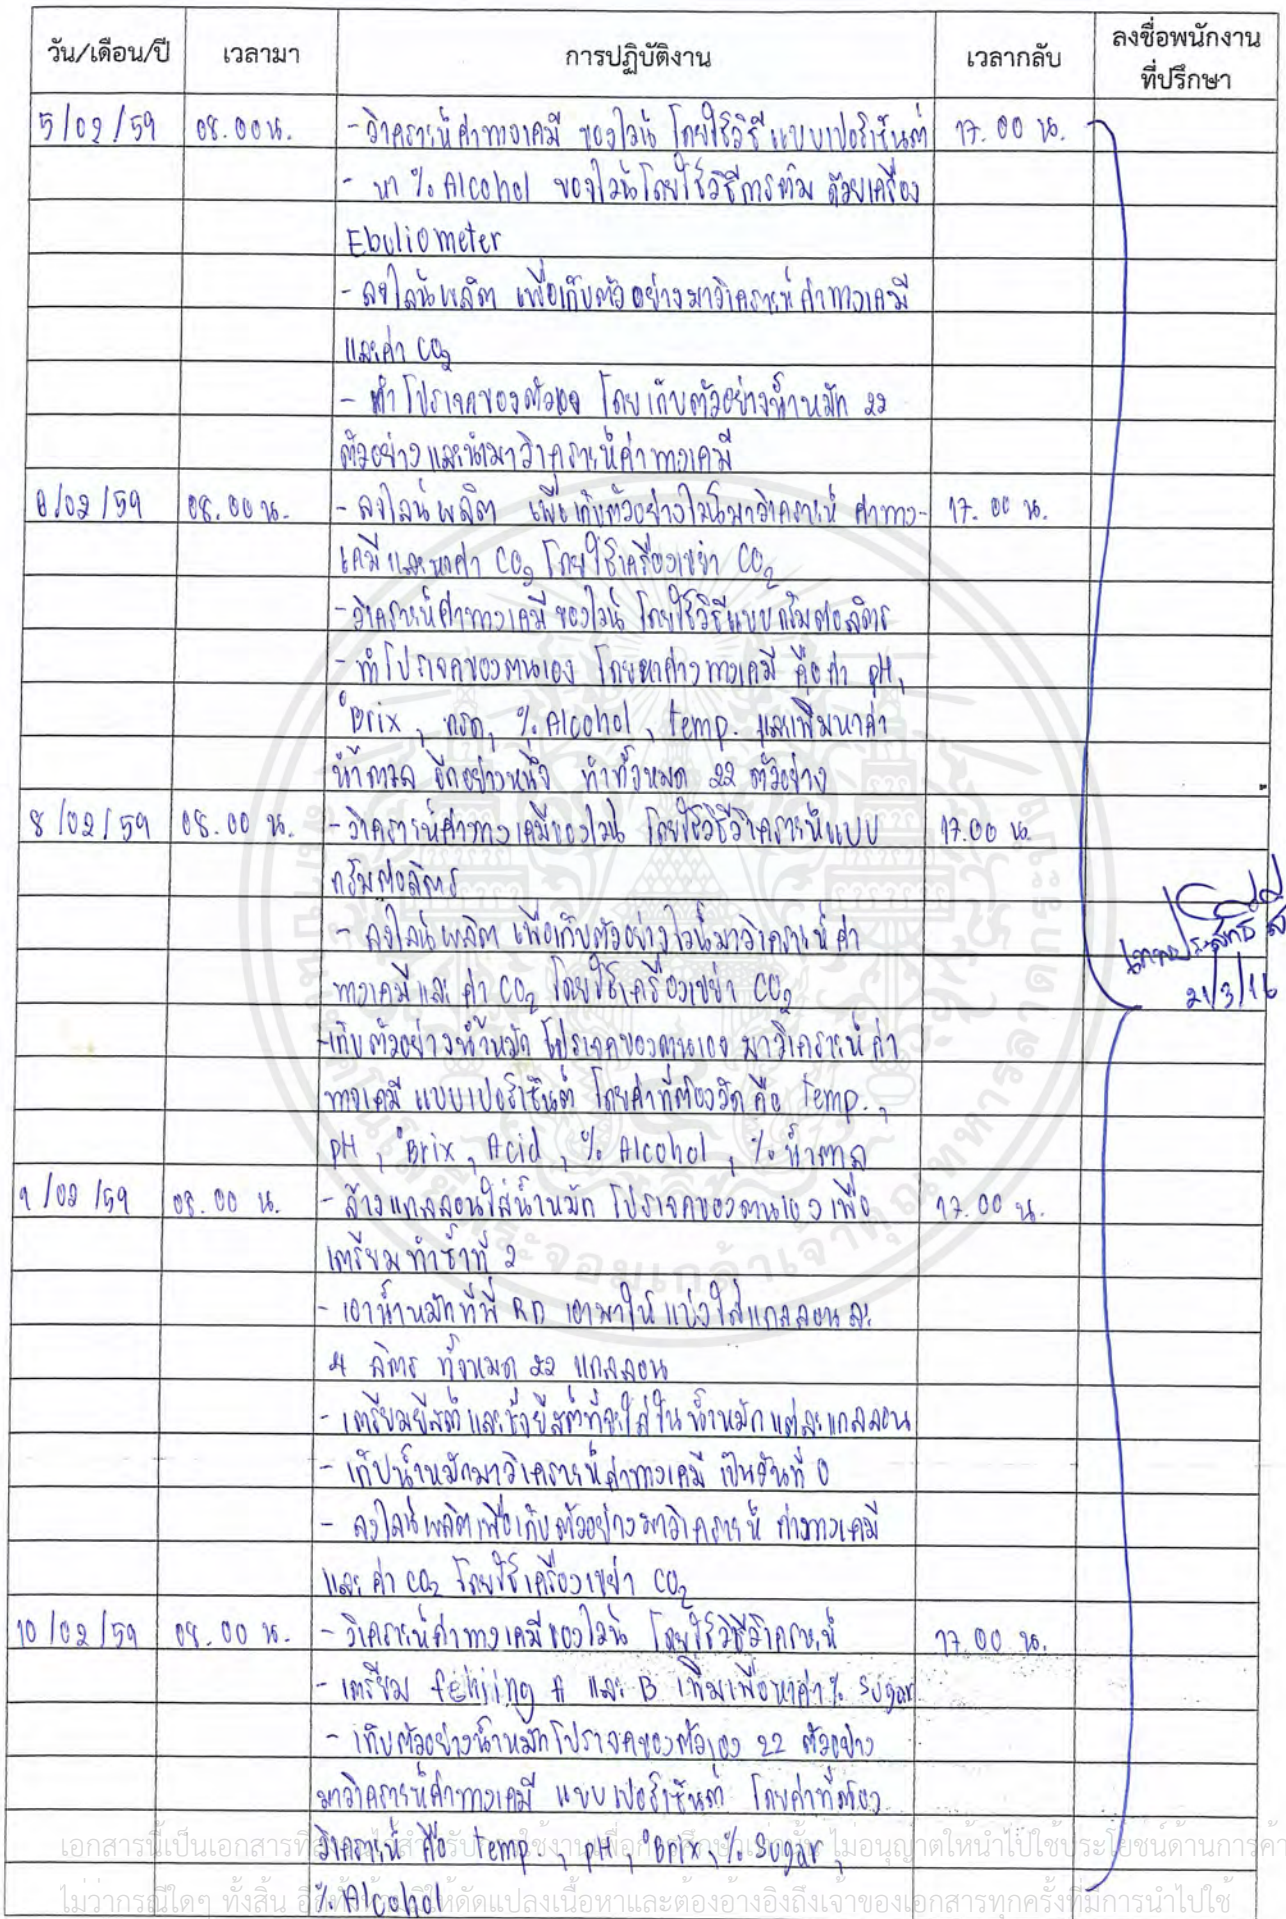 วัน/เดือน/ปี เวลามา การปฏิบัติงาน เวลากลับ ลงชื่อพนักงาน
ที่ปรึกษา
5/02/59 08.00 น. - วิเคราะห์ค่าทางเคมี ของไวน์ โดยใช้วิธีแบบเปอร์เซ็นต์ 17.00 น.
- หา % Alcohol ของไวน์โดยใช้วิธีการต้ม ด้วยเครื่อง
Ebuliometer
- ลงไลน์ผลิต เพื่อเก็บตัวอย่างมาวิเคราะห์ ค่าทางเคมี
และค่า CO2
- ทำโปรเจคของตัวเอง โดยเก็บตัวอย่างน้ำหมัก 22
ตัวอย่าง และนำมาวิเคราะห์ค่าทางเคมี
/02/59 08.00 น. - ลงไลน์ผลิต เพื่อเก็บตัวอย่างไวน์มาวิเคราะห์ ค่าทาง- 17.00 น.
เคมี และหาค่า CO2 โดยใช้เครื่องเขย่า CO2
- วิเคราะห์ค่าทางเคมี ของไวน์ โดยใช้วิธีแบบกรัมต่อลิตร
- ทำโปรเจคของตนเอง โดยหาค่าทางเคมี คือ ค่า pH,
°Brix, กรด, % Alcohol, temp. และเพิ่มหาค่า
น้ำตาล อีกอย่างหนึ่ง ทำทั้งหมด 22 ตัวอย่าง
8/02/59 08.00 น. - วิเคราะห์ค่าทางเคมีของไวน์ โดยใช้วิธีวิเคราะห์แบบ 17.00 น.
กรัมต่อลิตร
- ลงไลน์ผลิต เพื่อเก็บตัวอย่างไวน์มาวิเคราะห์ ค่า
ทางเคมี และ ค่า CO2 โดยใช้เครื่องเขย่า CO2
21/3/16
-เก็บตัวอย่างน้ำหมัก โปรเจคของตนเอง มาวิเคราะห์ ค่า
ทางเคมี แบบเปอร์เซ็นต์ โดยค่าที่ต้องวัด คือ Temp.,
pH, °Brix, Acid, % Alcohol, % น้ำตาล
9/02/59 08.00 น. - ล้างแกลลอนใส่น้ำหมัก โปรเจคของตนเอง เพื่อ 17.00 น.
เตรียม ทำซ้ำที่ 2
- เอาน้ำหมักที่พี่ RD เอามาให้ แบ่งใส่แกลลอนละ
4 ลิตร ทั้งหมด 22 แกลลอน
- เตรียมยีสต์ และชั่งยีสต์ที่จะใส่ในน้ำหมัก แต่ละแกลลอน
- เก็บน้ำหมักมาวิเคราะห์ค่าทางเคมี เป็นวันที่ 0
- ลงไลน์ผลิตเพื่อเก็บตัวอย่างมาวิเคราะห์ ค่าทางเคมี
และ ค่า CO2 โดยใช้เครื่องเขย่า CO2
10/02/59 08.00 น. - วิเคราะห์ค่าทางเคมีของไวน์ โดยใช้วิธีวิเคราะห์ 17.00 น.
- เตรียม fehiing A และ B เพิ่มเพื่อหาค่า % Sugar
- เก็บตัวอย่างน้ำหมักโปรเจคของตัวเอง 22 ตัวอย่าง
มาวิเคราะห์ค่าทางเคมี แบบเปอร์เซ็นต์ โดยค่าที่ต้อง
วิเคราะห์ คือ temp., pH, °Brix, % Sugar,
% Alcohol